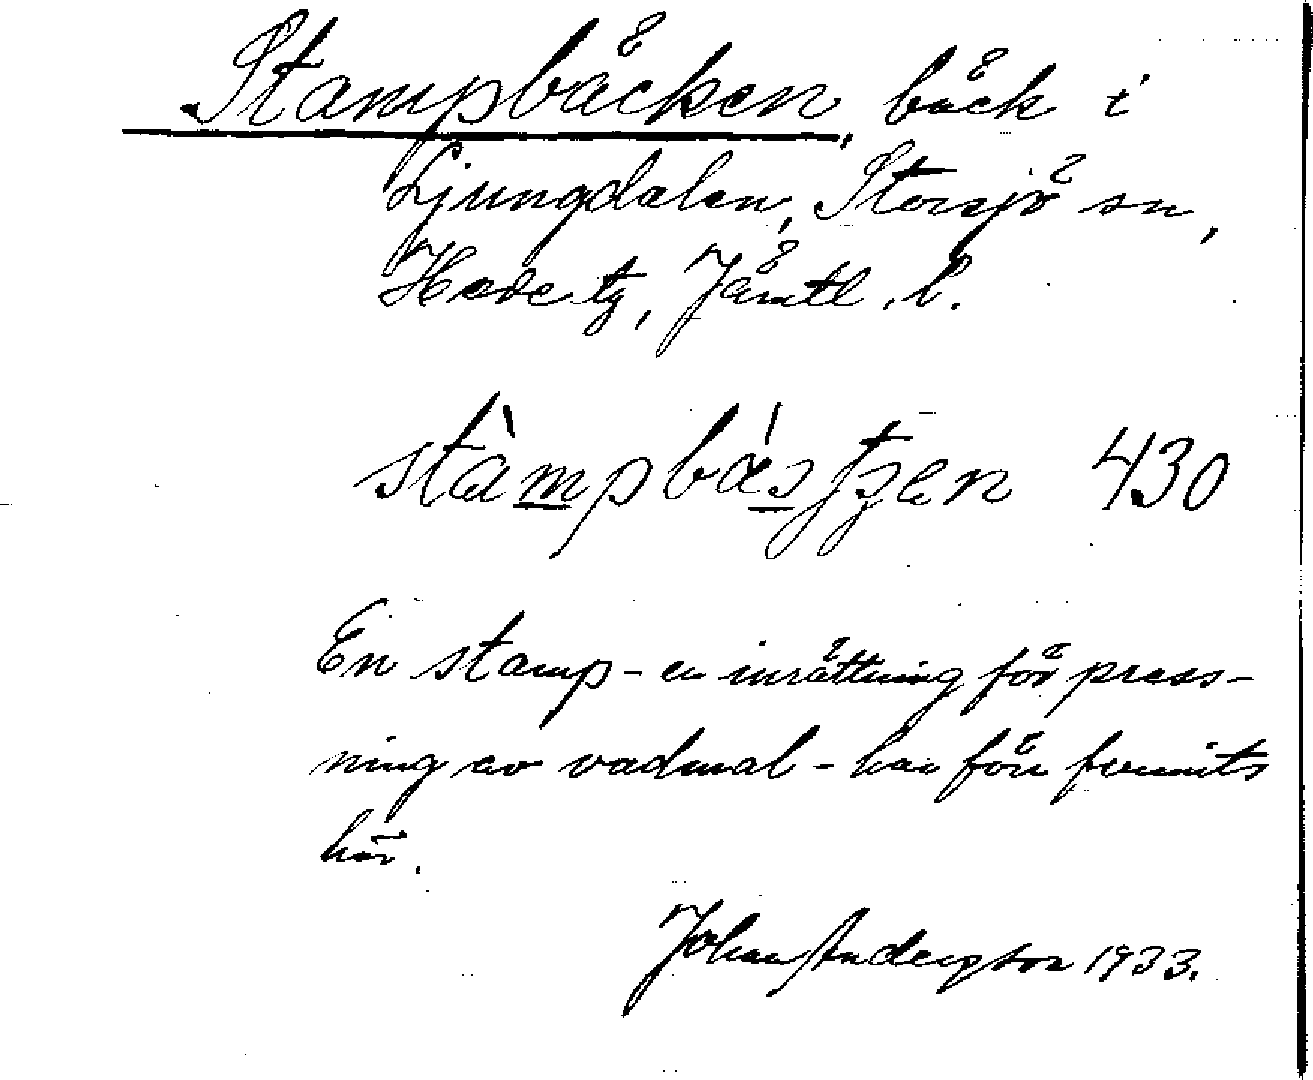 Stampbäcken, bäck i
Ljungdalen, Storsjö sn,
Hede tg, Jämtl. l.
stàmpbá 430
En stamp - en inrättning för press-
ning av vadmal - har förr funnits
här.
Johan Anderson 1933.